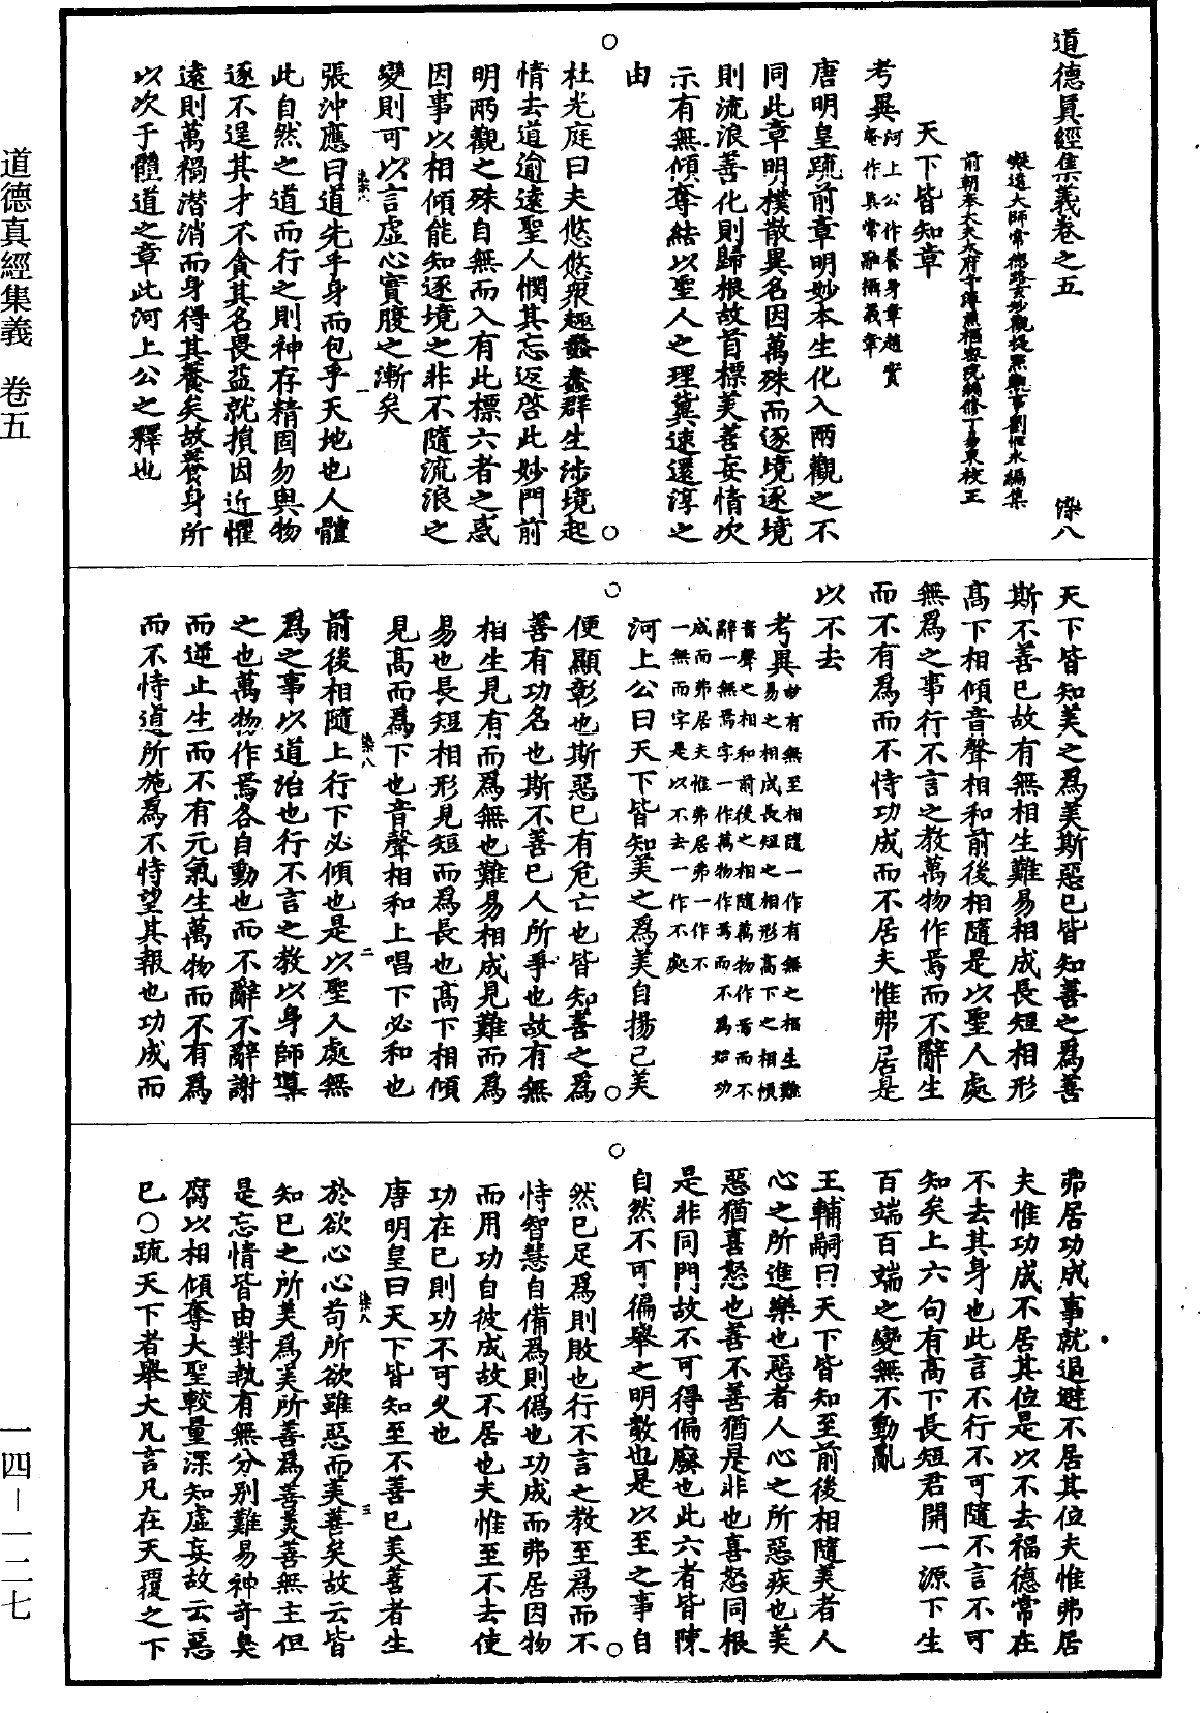 道德真經集義卷之五　染八
凝遠大師常德路玄妙觀提點觀事劉惟永編集
前朝奉大夫太府寺簿兼樞密院編修丁易東校正
天下皆知章
考異河上公作養身章趙實
菴作真常融攝義章
唐明皇疏前章明妙本生化入兩觀之不
同此章明樸散異名因萬殊而逐境逐境
則流浪善化則歸根故首標美善妄情次
示有無傾奪結以聖人之理冀速還淳之
由
杜光庭曰夫悠悠衆趣蠢蠢群生涉境起
情去道逾遠聖人憫其忘返啓此妙門前
明兩觀之殊自無而入有此標六者之惑
因事以相傾能知逐境之非不隨流浪之
變則可以言虛心實腹之漸矣
張沖應曰道先乎身而包乎天地也人體
此自然之道而行之則神存精固勿與物
逐不逞其才不貪其名畏益就損因近懼
遠則萬禍潛消而身得其養矣故養身所
以次于體道之章此河上公之釋也
天下皆知美之爲美斯惡已皆知善之爲善
斯不善已故有無相生難易相成長短相形
高下相傾音聲相和前後相隨是以聖人處
無爲之事行不言之教萬物作焉而不辭生
而不有爲而不恃功成而不居夫惟弗居是
以不去
考異故有無至相隨一作有無之相生難
易之相成長短之相形高下之相傾
音聲之相和前後之相隨萬物作焉而不
辭一無焉字一作萬物作焉而不爲始功
成而弗居夫惟弗居弗一作不
一無而字是以不去一作不處
河上公曰天下皆知美之爲美自揚己美
便顯彰也斯惡已有危亡也皆知善之爲
善有功名也斯不善已人所爭也故有無
相生見有而爲無也難易相成見難而爲
易也長短相形見短而爲長也高下相傾
見高而爲下也音聲相和上唱下必和也
前後相隨上行下必傾也是以聖人處無
爲之事以道治也行不言之教以身師導
之也萬物作焉各自動也而不辭不辭謝
而逆止生而不有元氣生萬物而不有爲
而不恃道所施爲不恃望其報也功成而
弗居功成事就退避不居其位夫惟弗居
夫惟功成不居其位是以不去福德常在
不去其身也此言不行不可隨不言不可
知矣上六句有高下長短君開一源下生
百端百端之變無不動亂
王輔嗣曰天下皆知至前後相隨美者人
心之所進樂也惡者人心之所惡疾也美
惡猶喜怒也善不善猶是非也喜怒同根
是非同門故不可得偏廢也此六者皆陳
自然不可偏舉之明數也是以至之事自
然已足爲則敗也行不言之教至爲而不
恃智慧自備爲則僞也功成而弗居因物
而用功自彼成故不居也夫惟至不去使
功在已則功不可久也
唐明皇曰天下皆知至不善已美善者生
於欲心心苟所欲雖惡而美善矣故云皆
知已之所美爲美所善爲善美善無主但
是忘情皆由對執有無分別難易神奇臭
腐以相傾奪大聖較量深知虛妄故云惡
已○疏天下者舉大凡言凡在天覆之下
染八　一
染八　二
染八　三
道德真經集義　卷五
一四—一二七